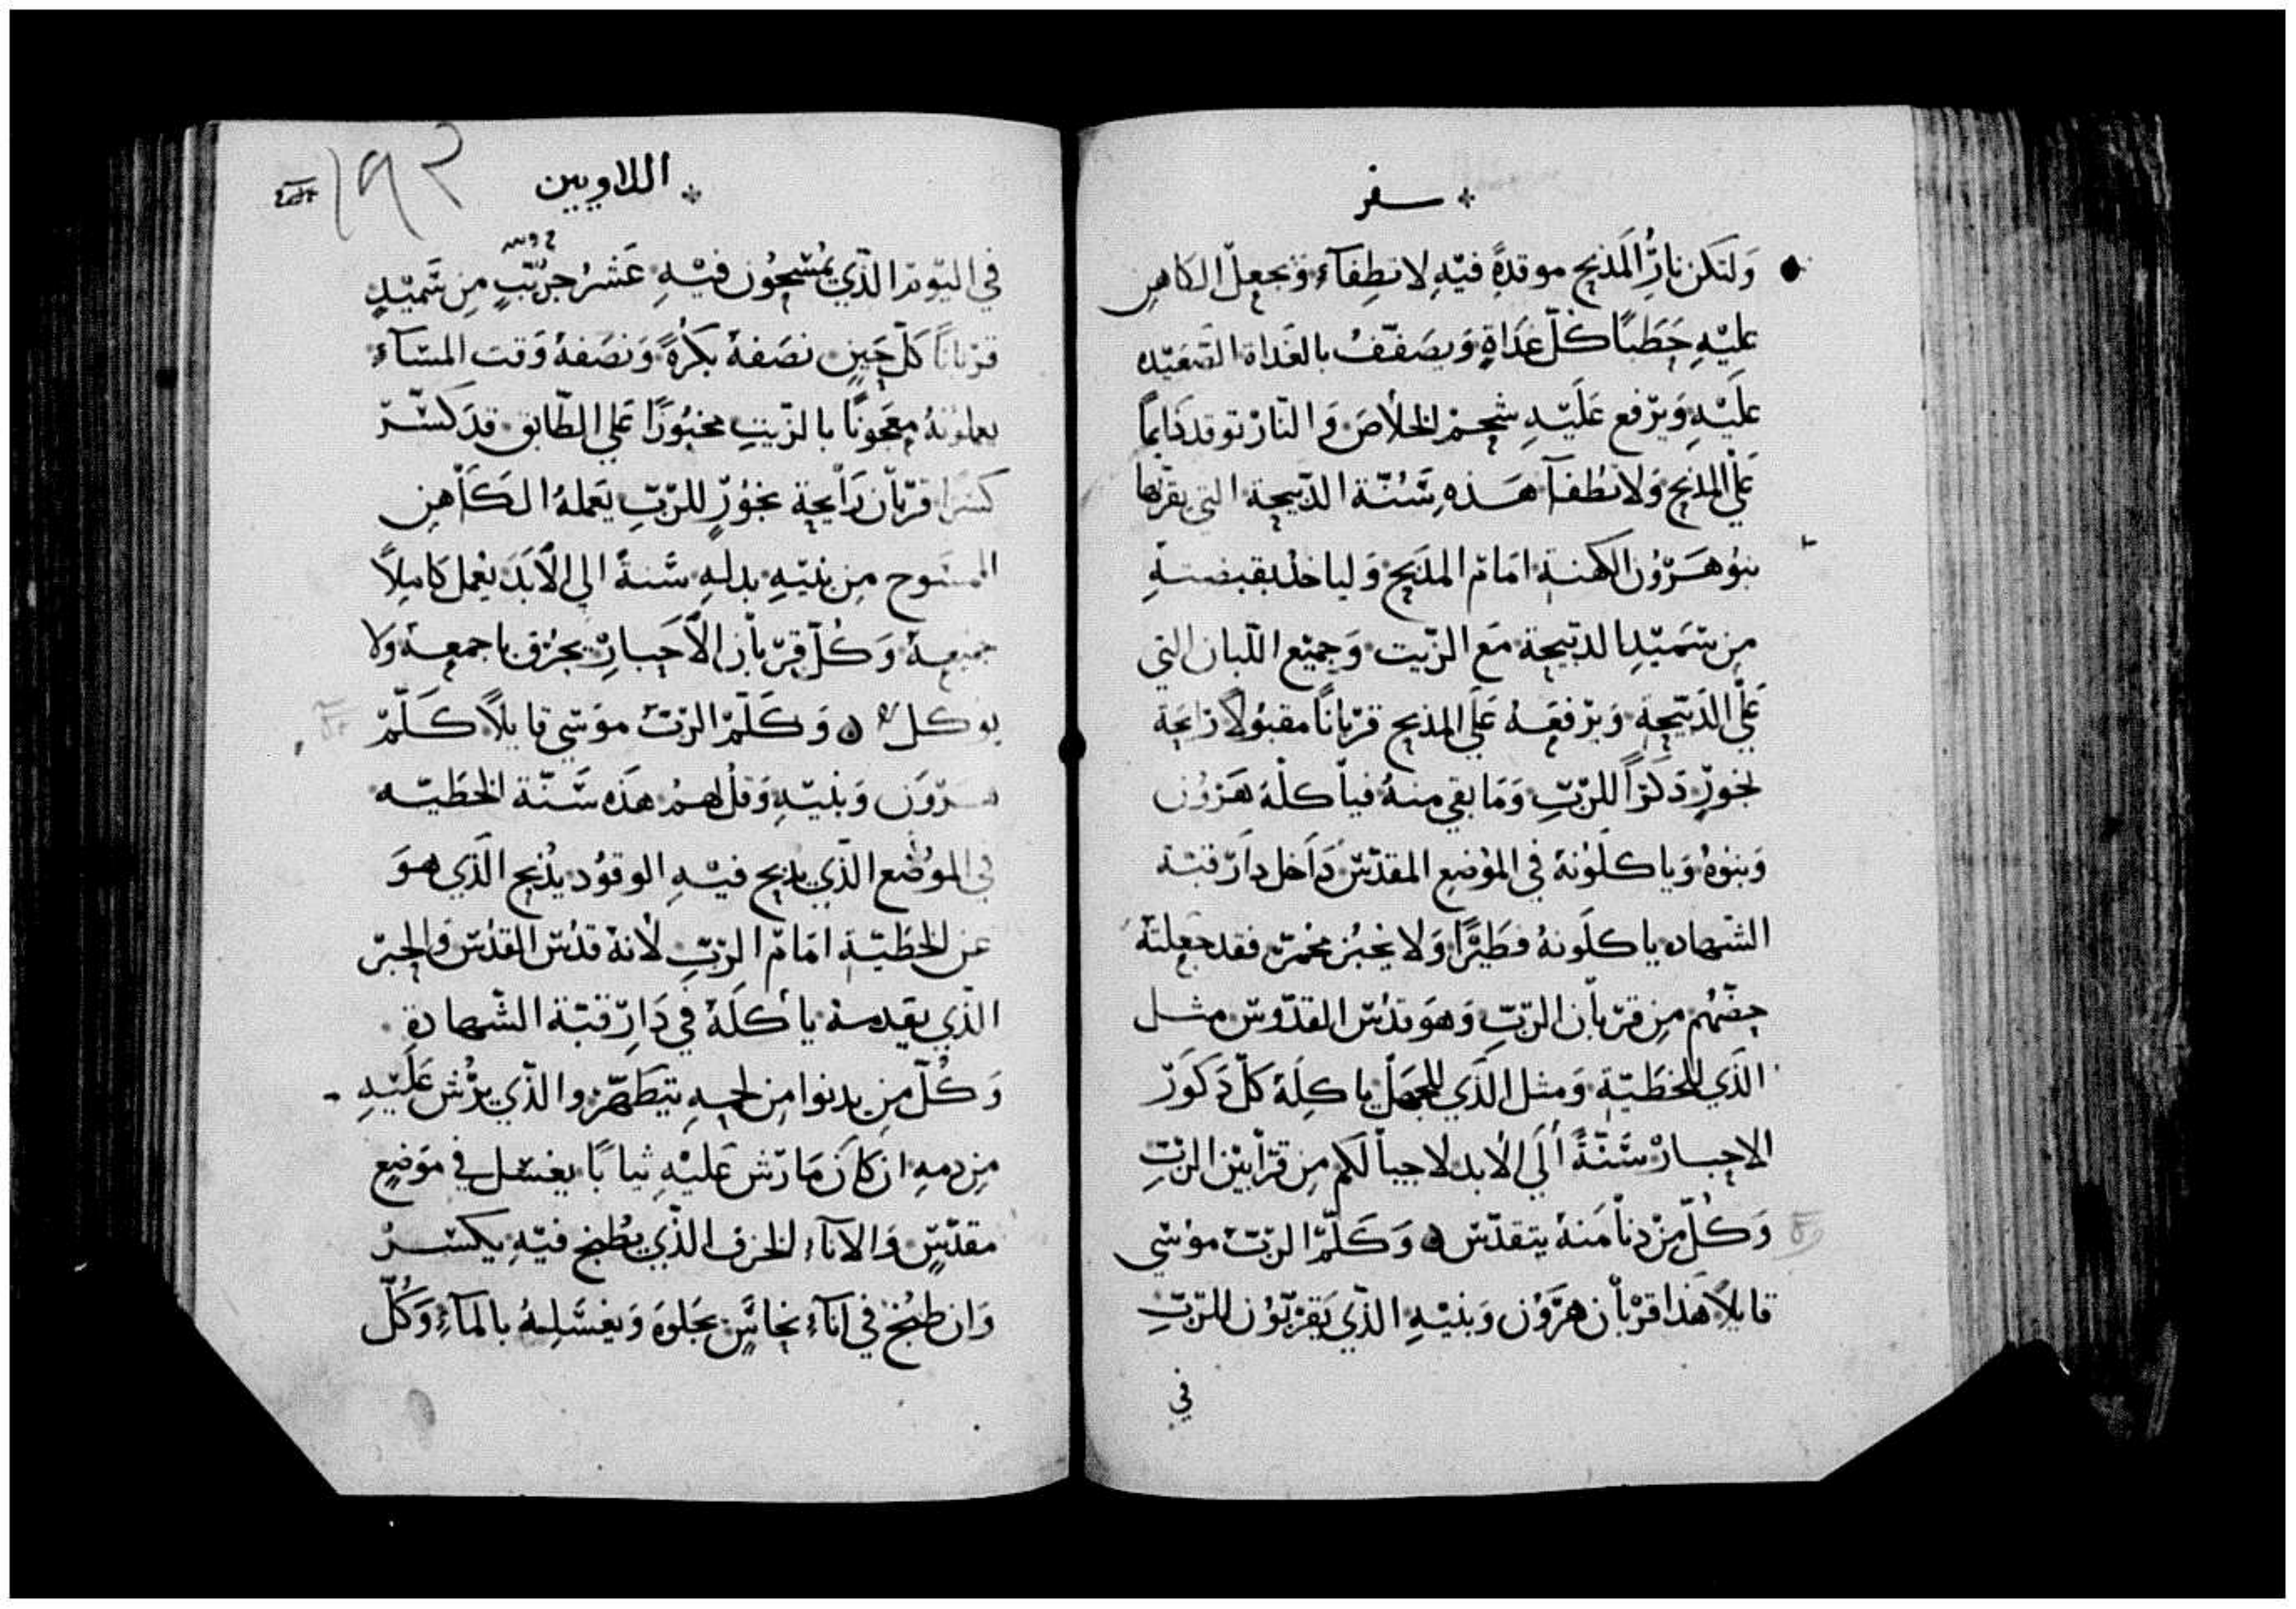 سفر
وَلتكن نارُ المَذبح موقدةً فيْهِ لا تطِفآء وَيجعلّ الكاهن
عليْهِ حَطبًا كلّ غدَاةٍ وَيصَففُ بالغَداة الصّعَيده
علَيْهِ وَيرْفع عَلَيْهِ شحمْ الخلاصَ وَالنّارْ توقد دَايماً
عَلي المذبح وَلا تطُفآ هَذه سُنّة الذبيحة التي يقربها
بنوُ هَرّوُن الكهنة امَام المذبح وَلياخذ بقبضتهِ
مِن سَميْدِ الذبيحة مَع الزّيت وَجميْع اللّبان التي
عَلّي الذَبيّحةِ وَيرْفعَهُ عَلَي المذبح قرْباناً مقبوُلاً رَايحَة
بخورٍ ذكرًا للربّ وَمَا بقي منهُ فياكلهَ هَرُوُن
وَبنوهُ وَياكلوُنهُ في الموُضع المقدّسَ دَاخل دَارَ قبّة
الشهاده ياكلَونهُ فطَيْرًا وَلا يخبُز مخمرّ فقد جعلتهَ
حضّهُم مِن قرّبان الربّ وَهوَ قدُس القدّوس مثل
الذَي للخطَيّةِ وَمثل الذَي للجهل ياكلَهَ كلّ ذكوَر
الاحبار سَّنّةً اَلَي الأبد لاجيالكم مِن قرّابيْن الربّ
وَكلّ مِنْ دنا مَنهُ يتقدّس وَكلّمْ الربّ موُسْي
قايلاً هَذا قرْبان هرّوُن وَبنيْهِ الذّي يَقربوُن للربّ
في
اللاويين
١٩٢
في اليوم الذّي يمُسحُون فيْهِ عَشرُ جريّبٍ مِن سَميْدٍ
قرْباناً كلّ حَيْنٍ نصَفهُ بكرةً وَنصَفهُ وَقت المسَآء
يعملونهُ معجوُنًا بالزّيت مخبوُزًا عَلي الطّابق قد كسّرّ
كسَرًا قرّبان رَايحة بخوُرٍ للربّ يعَملهُ الكَاهِن
الممسَوح مِن بنيْهِ بدلهِ سَنةً الي الأبَدَ يعْمل كامِلاً
جميعهُ وَكُلّ قرّبان الأحَبارْ يحرُق باجمعهُ وَلا
يوكل وَكلّمْ الربّ موَسْي قايلاً كلّمْ
هَرّوَن وَبنيْهِ وَقل لهمُ هَذه سَنّة الخطيّه
في الموُضَع الذّي يذبح فيْهِ الوقوُد يذُبح الذَي هوَ
عن الخطَيّة امَام الربّ لأنهُ قدُس القدُس وَالحبرّ
الذّي يقدمهُ يأكلَهُ في دَارِ قبّة الشّهادة
وَكُلّ مِن يدنوا مِن لحمهِ يتطَهرّ والذّي يرُّش عَليْهِ
مِن دمهِ ان كان مَا رَش عَليْهِ ثيابًا يغسَل في موَضعٍ
مقدّسٍ وَالاناء الخزف الذّي يطُبخ فيْهِ يكسّرْ
وَان طبُخ في انآء نحاسٍ يجَلوهَ وَيغسَلهُ بالمآء وَكُلّ